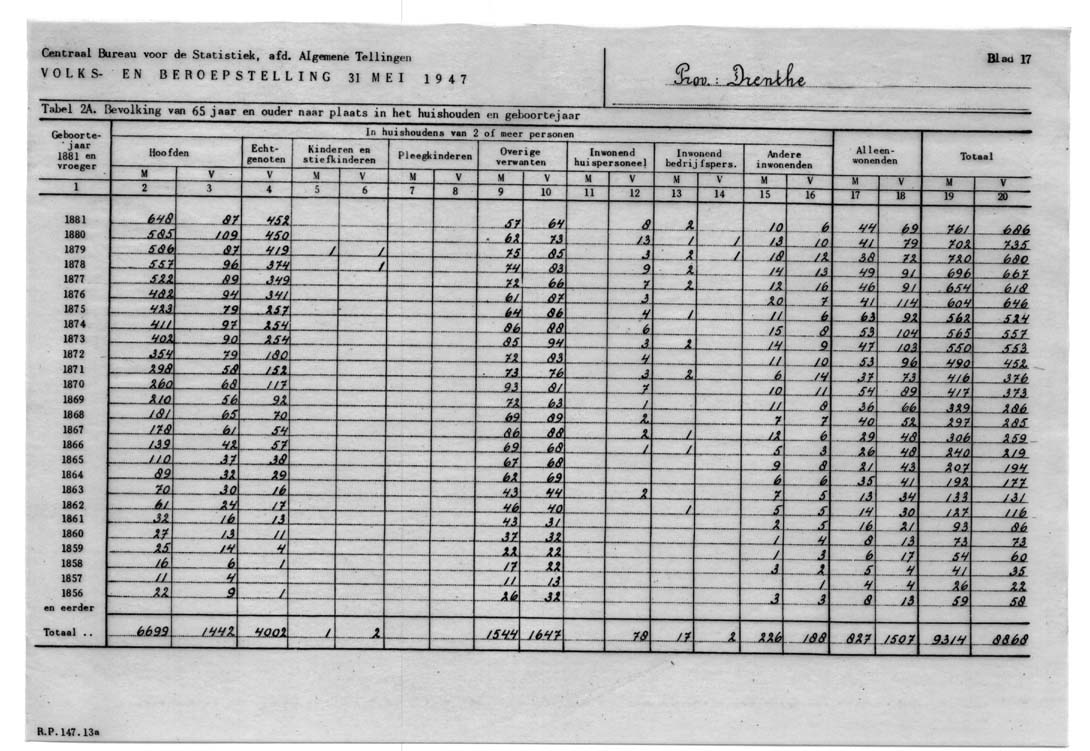 Centraal Bureau voor de Statistiek, afd. Algemene Tellingen
VOLKS- EN BEROEPSTELLING 31 MEI 1947
Prov.: Drenthe
Blad 17
Tabel 2A. Bevolking van 65 jaar en ouder naar plaats in het huishouden en geboortejaar
Geboorte-jaar 1881 en vroeger | In huishoudens van 2 of meer personen | Alleen-wonenden | Totaal
Hoofden | Echt-genoten | Kinderen en stiefkinderen | Pleegkinderen | Overige verwanten | Inwonend huispersoneel | Inwonend bedrijfspers. | Andere inwonenden
M V V M V M V M V M V M V M V M V M V
1 2 3 4 5 6 7 8 9 10 11 12 13 14 15 16 17 18 19 20
1881 648 87 452 57 64 8 2 10 6 44 69 761 686
1880 585 109 450 62 73 13 1 1 13 10 41 79 702 735
1879 586 87 419 1 1 75 85 3 2 1 18 12 38 72 720 680
1878 557 96 374 1 74 83 9 2 14 13 49 91 696 667
1877 522 89 349 72 66 7 2 12 16 46 91 654 618
1876 482 94 341 61 87 3 20 7 41 114 604 646
1875 423 79 257 64 86 4 1 11 6 63 92 562 524
1874 411 97 254 86 88 6 15 8 53 104 565 557
1873 402 90 254 85 94 3 2 14 9 47 103 550 553
1872 354 79 180 72 83 4 11 10 53 96 490 452
1871 298 58 152 73 76 3 2 6 14 37 73 416 376
1870 260 68 117 93 81 7 10 11 54 89 417 373
1869 210 56 92 72 63 1 11 8 36 66 329 286
1868 181 65 70 69 89 2 7 7 40 52 297 285
1867 178 61 54 86 88 2 1 12 6 29 48 306 259
1866 139 42 57 69 68 1 1 5 3 26 48 240 219
1865 110 37 38 67 68 9 8 21 43 207 194
1864 89 32 29 62 69 6 6 35 41 192 177
1863 70 30 16 43 44 2 7 5 13 34 133 131
1862 61 24 17 46 40 1 5 5 14 30 127 116
1861 32 16 13 43 31 2 5 16 21 93 86
1860 27 13 11 37 32 1 4 8 13 73 73
1859 25 14 4 22 22 1 3 6 17 54 60
1858 16 6 1 17 22 3 2 5 4 41 35
1857 11 4 11 13 1 4 4 26 22
1856 22 9 1 26 32 3 3 8 13 59 58
en eerder
Totaal .. 6699 1442 4002 1 2 1544 1647 78 17 2 226 188 827 1507 9314 8868
R.P.147.13a